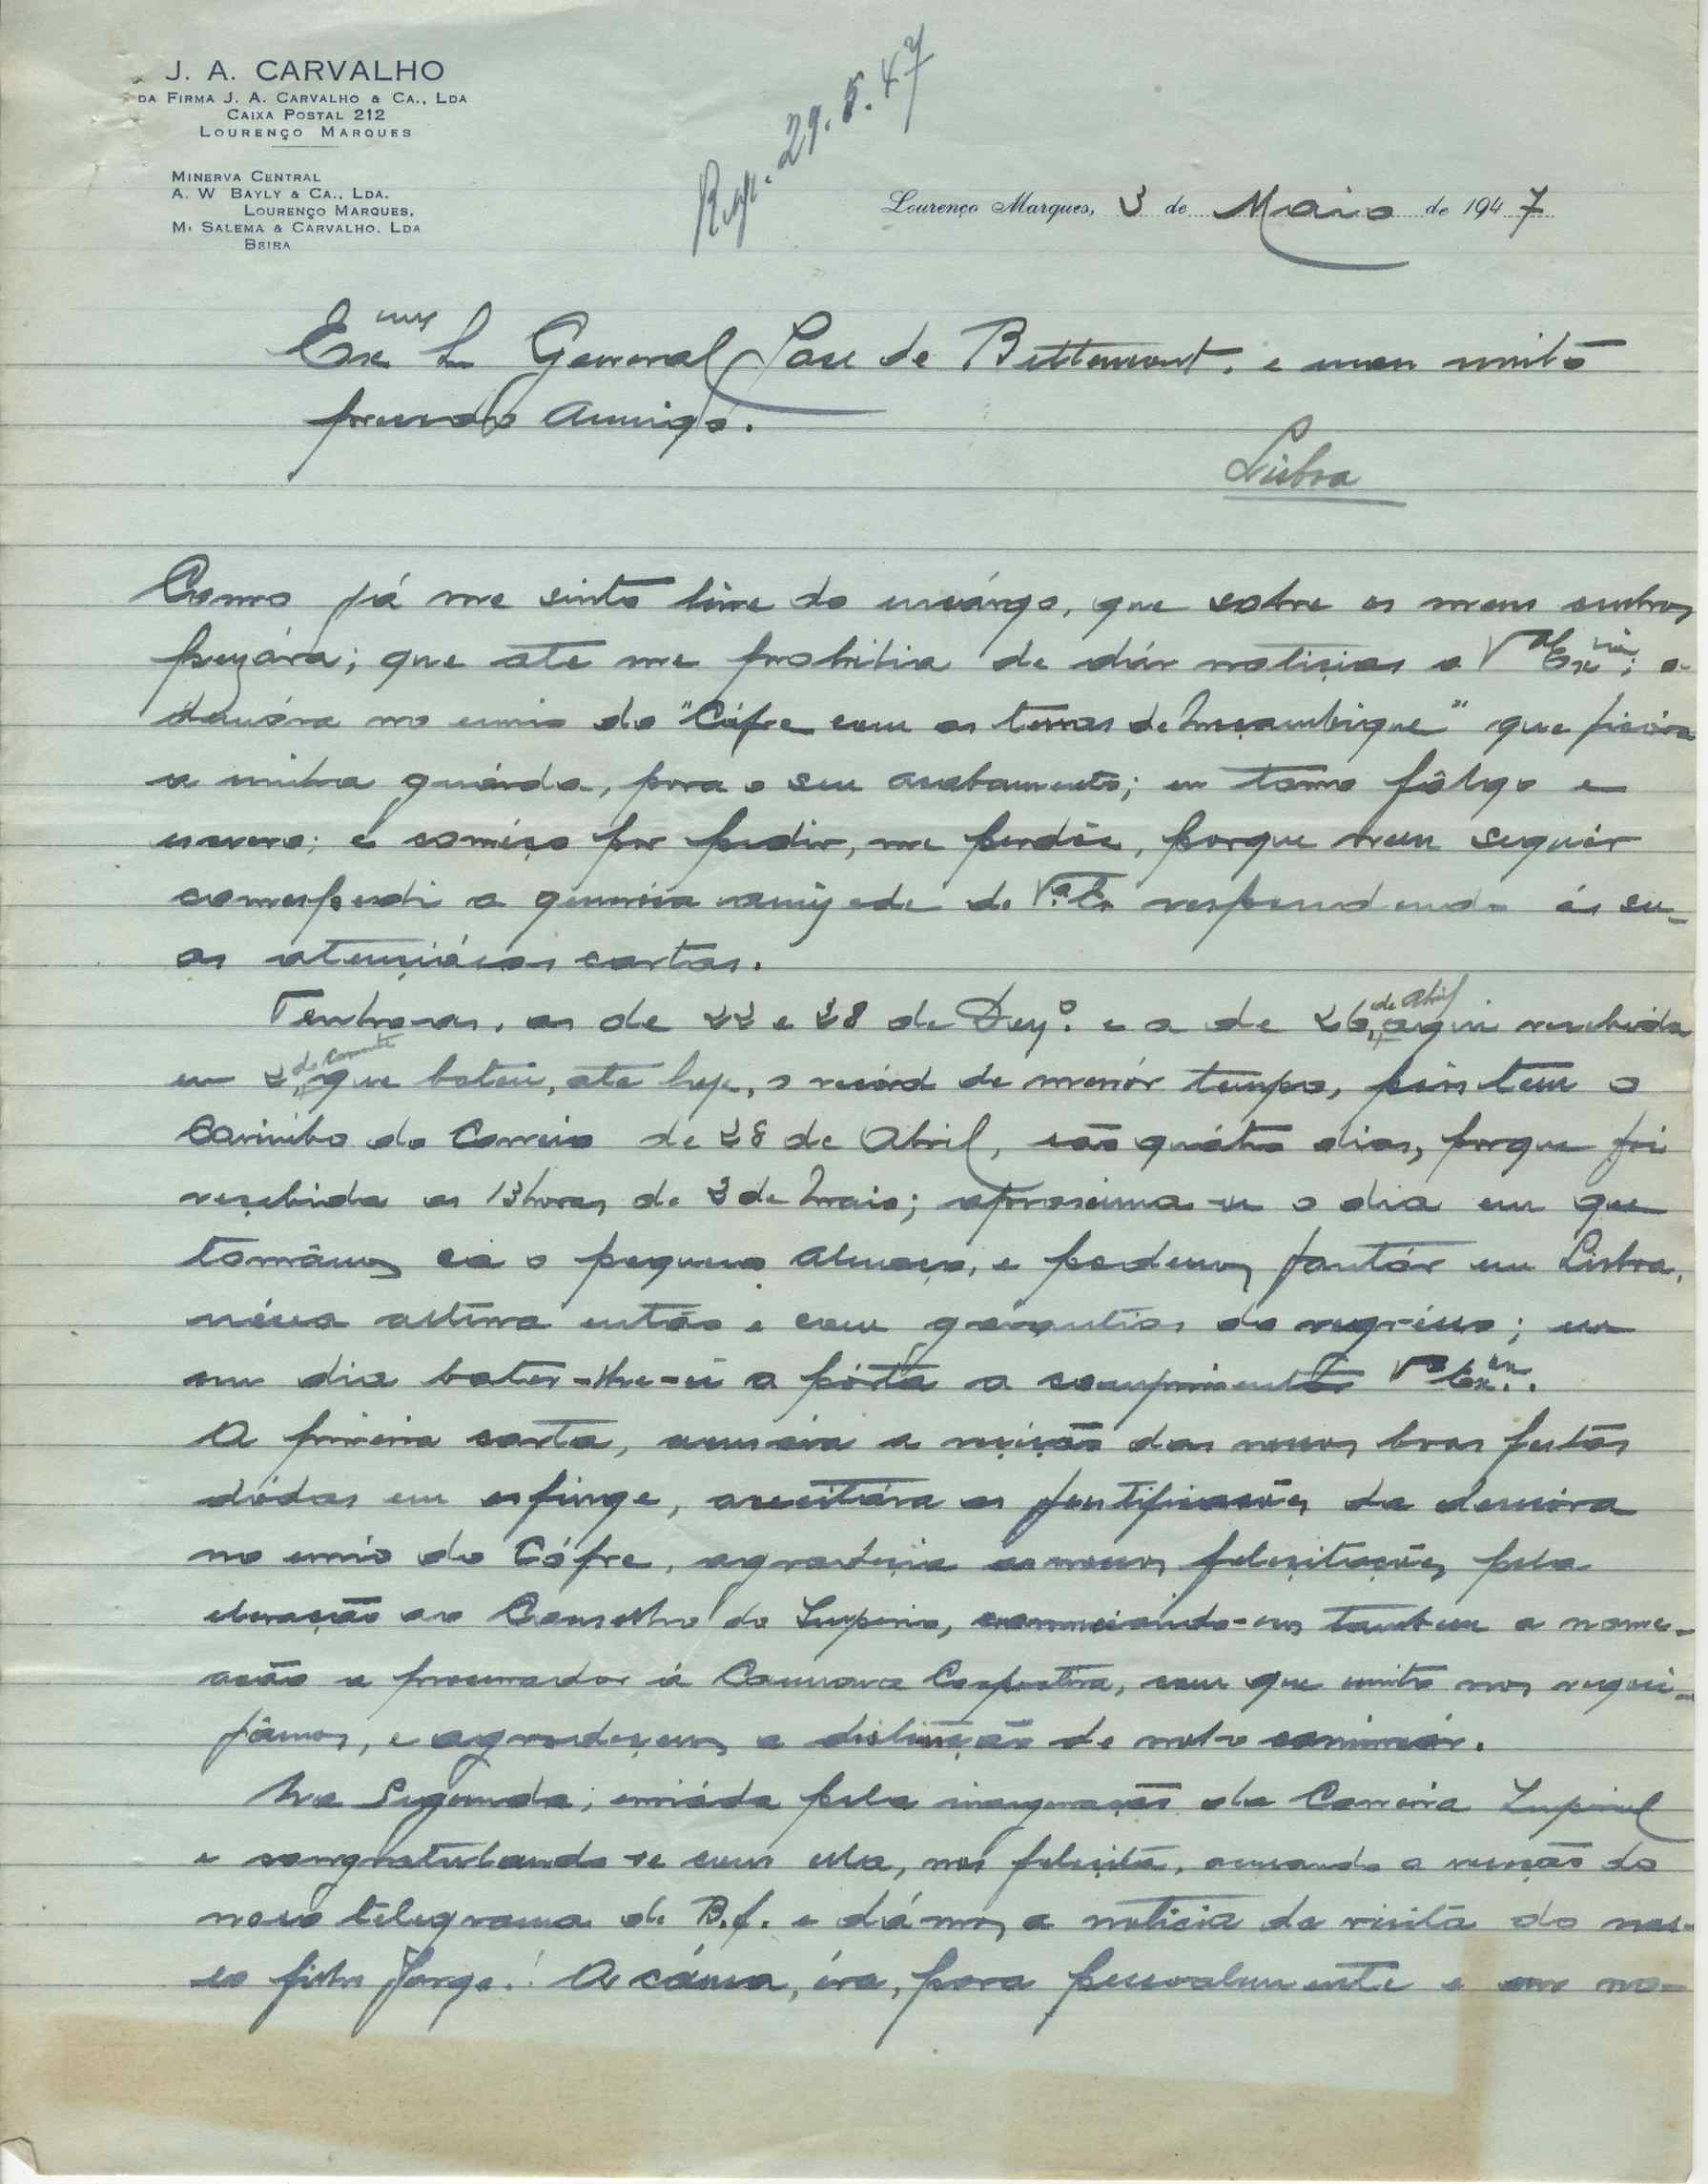 J. A. CARVALHO
DA FIRMA J. A. CARVALHO & CA., LDA
CAIXA POSTAL 212
LOURENÇO MARQUES
MINERVA CENTRAL
A. W BAYLY & CA., LDA.
LOURENÇO MARQUES,
M. SALEMA & CARVALHO. LDA
BEIRA
29.5.47
Lourenço Marques, 3 de Maio de 1947
Exmo Sr General José de Bettencourt. e meu muito
presado Amigo.
Lisboa
Como já me sinto livre do encárgo, que sobre os meus ombros
pezára; que até me prohibia de dár noticias a Vª Exciª; a
demóra no envio do "Cófre com as terras de Moçambique" que ficára
a minha guárda, para o seu acabamento; eu tomo fôlego e
escrevo; e coméço por pedir, me perdôe, porque nem sequér
correspondi a amizade de Vª Ex respondendo ás su-
as atenciósas cartas.
Tenho as de 22 e 28 de Dezº. e a de 26, de Abril aqui recebida
em 2 do corrente que bateu, até hoje, o recórd de menór tempo, pois tem o
Carimbo do Correio de 28 de Abril, são quátro dias, porque foi
recebida as 13 horas de 2 de Maio; aproxima-se o dia em que
tomâmos cá o pequeno almoço, e podemos jantár em Lisboa,
néssa altura então e com garantias do regrésso; eu
um dia bater-lhe-ei a pórta a comprimentar Vª Exª.
A primeira carta, acusáva a das nossas boas festas
dádas em esfinge, aceitára as justificações da demóra
no envio do Cófre, agradecia as nossas felicitações pela
elevação ao Conselho do Império, anunciando-nos tambem a nome-
ação a procurador á Camara Corporativa, com que muito nos regosi-
jâmos, e agradecemos a distinção de
Na Segunda; enviáda pela inauguração da Carreira Imperial
e congratulando-se com ela, nos felicita, acusando a do
nosso telegrama de B.f. e dá nos a noticia da visita do nos-
so filho Jorge! A cáusa, éra, para pessoalmente e em no-